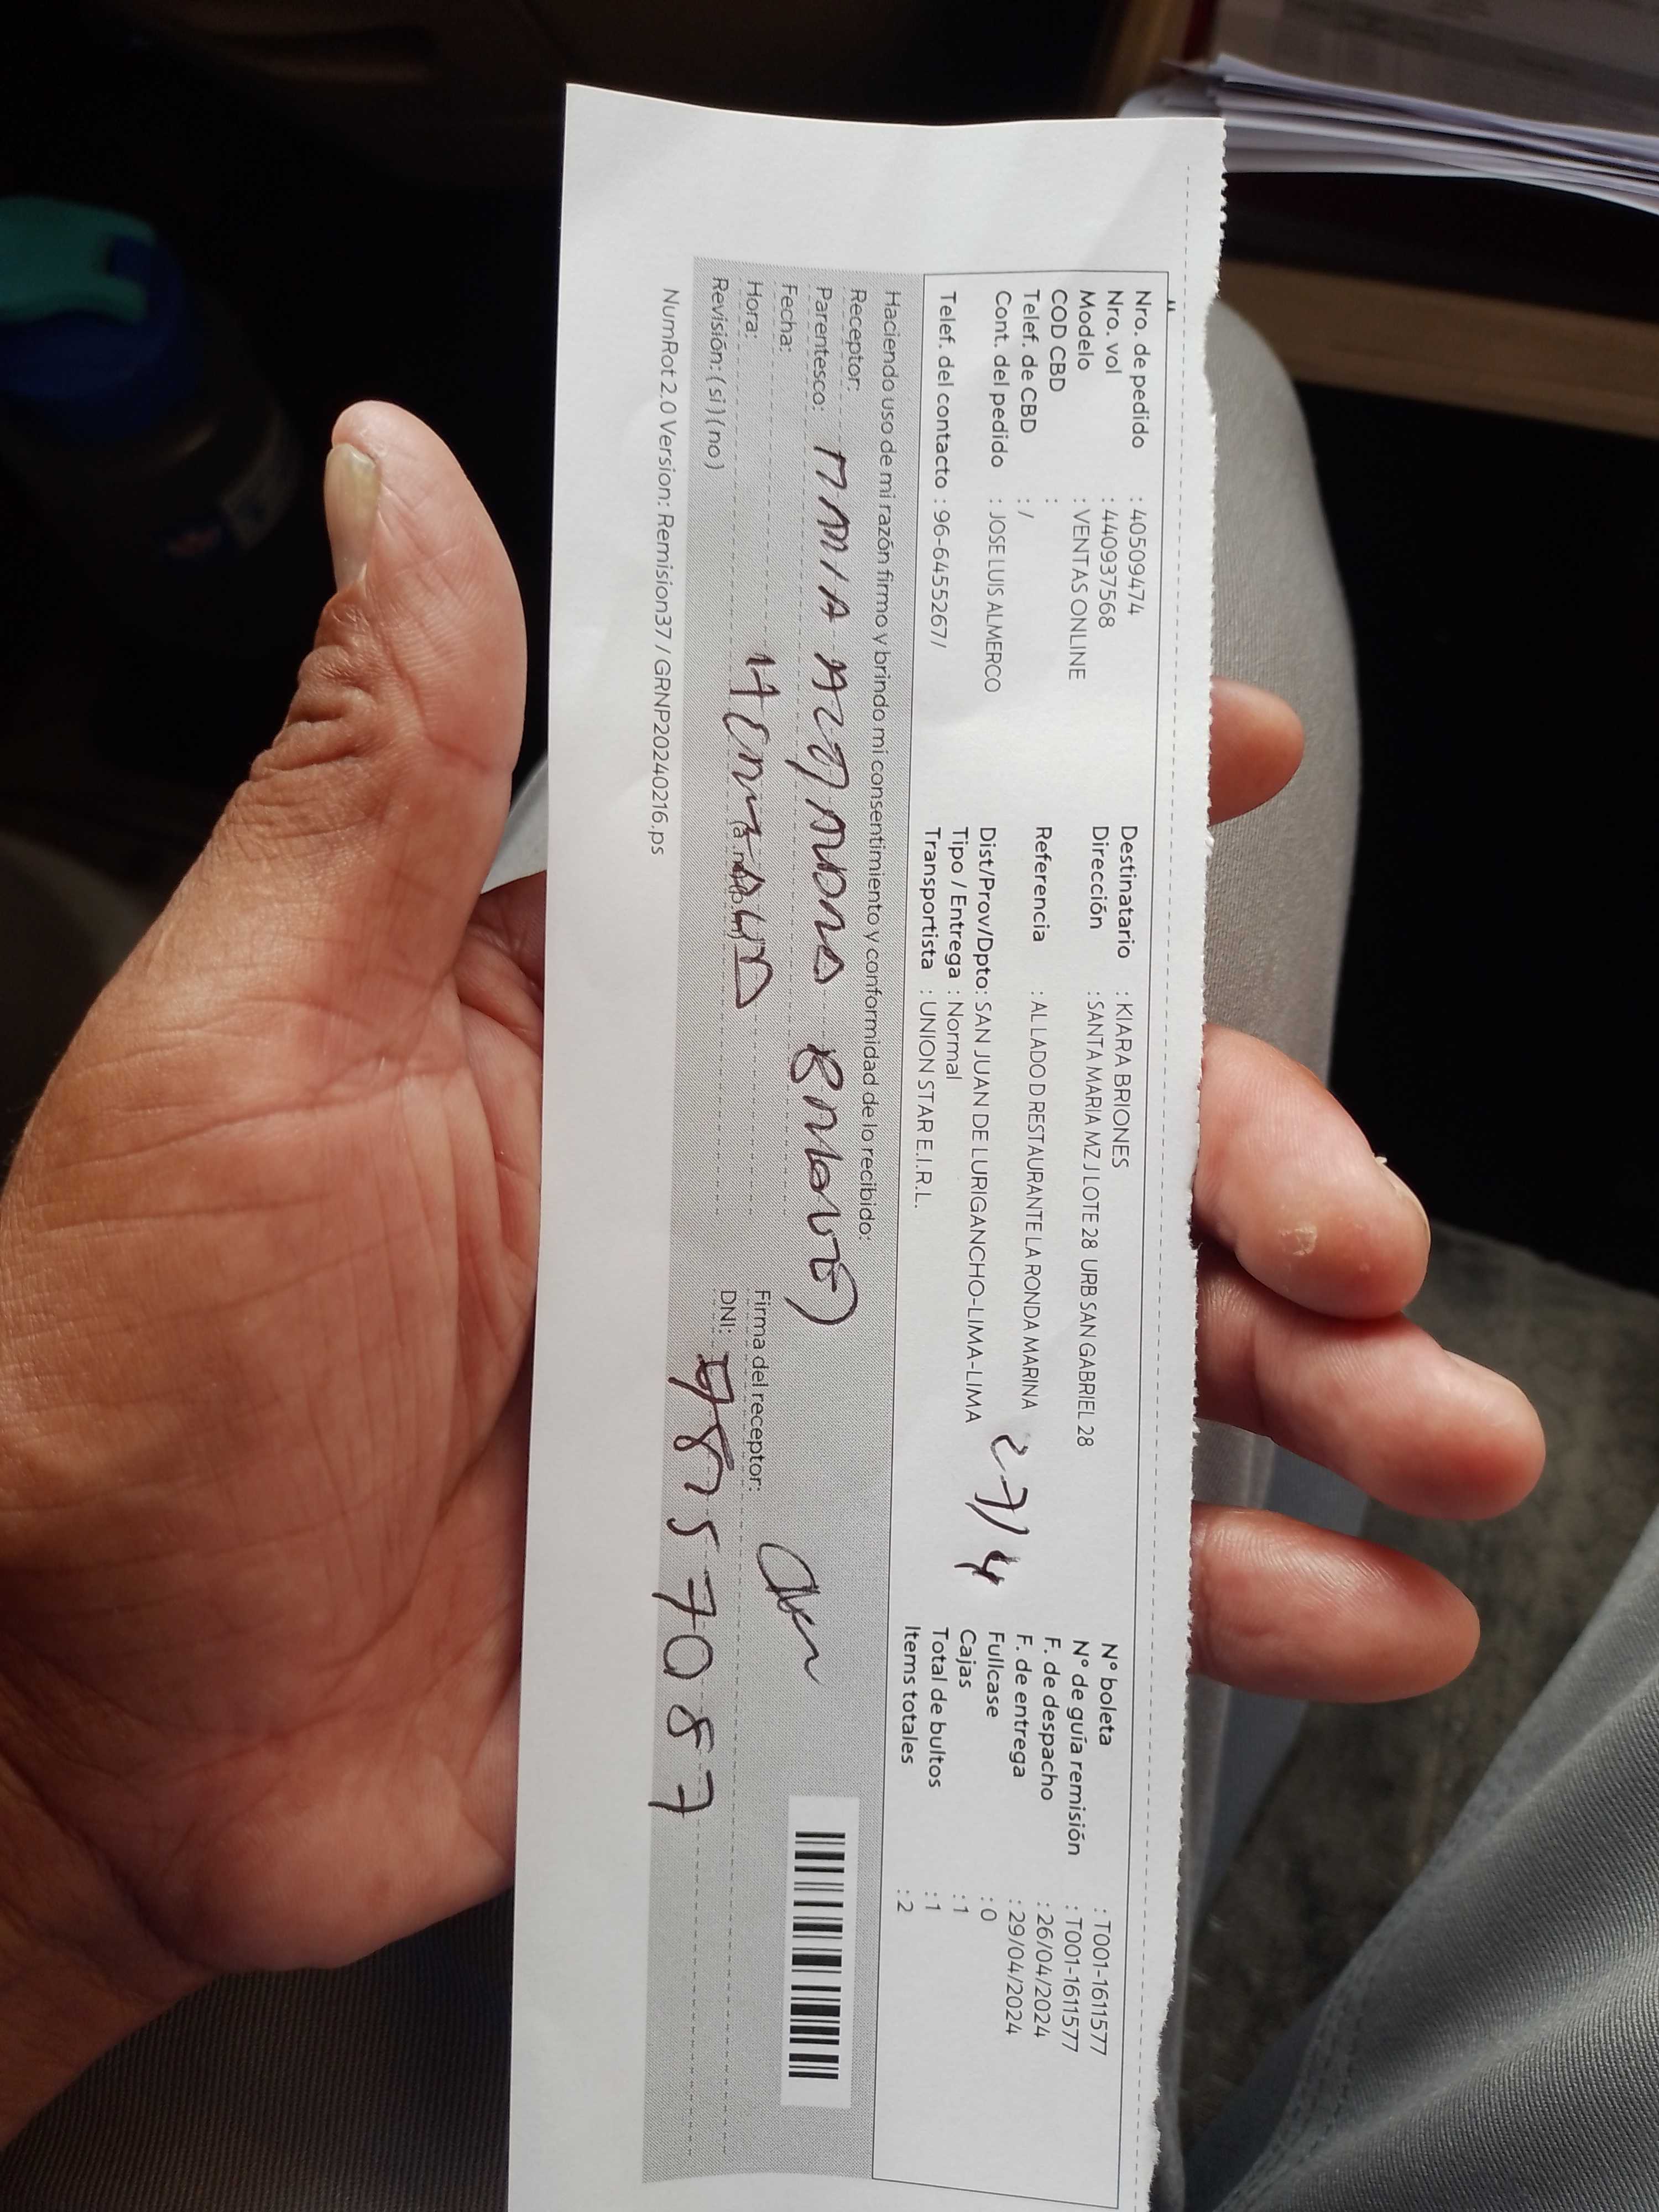 Nro. de pedido : 40509474
Nro. vol : 440937568
Modelo : VENTAS ONLINE
COD CBD :
Telef. de CBD : /
Cont. del pedido : JOSE LUIS ALMERCO
Telef. del contacto : 96-6455267/
Destinatario : KIARA BRIONES
Dirección : SANTA MARIA MZ J LOTE 28 URB SAN GABRIEL 28
Referencia : AL LADO D RESTAURANTE LA RONDA MARINA
Dist/Prov/Dpto: SAN JUAN DE LURIGANCHO-LIMA-LIMA
Tipo / Entrega : Normal
Transportista : UNION STAR E.I.R.L.
27/4
N° boleta : T001-1611577
N° de guía remisión : T001-1611577
F. de despacho : 26/04/2024
F. de entrega : 29/04/2024
Fullcase : 0
Cajas : 1
Total de bultos : 1
Items totales : 2
Haciendo uso de mi razón firmo y brindo mi consentimiento y conformidad de lo recibido:
Receptor:
Parentesco:
Fecha:
Hora:
Revisión: ( si ) ( no )
Firma del receptor:
DNI:
NumRot 2.0 Version: Remision37 / GRNP20240216.ps